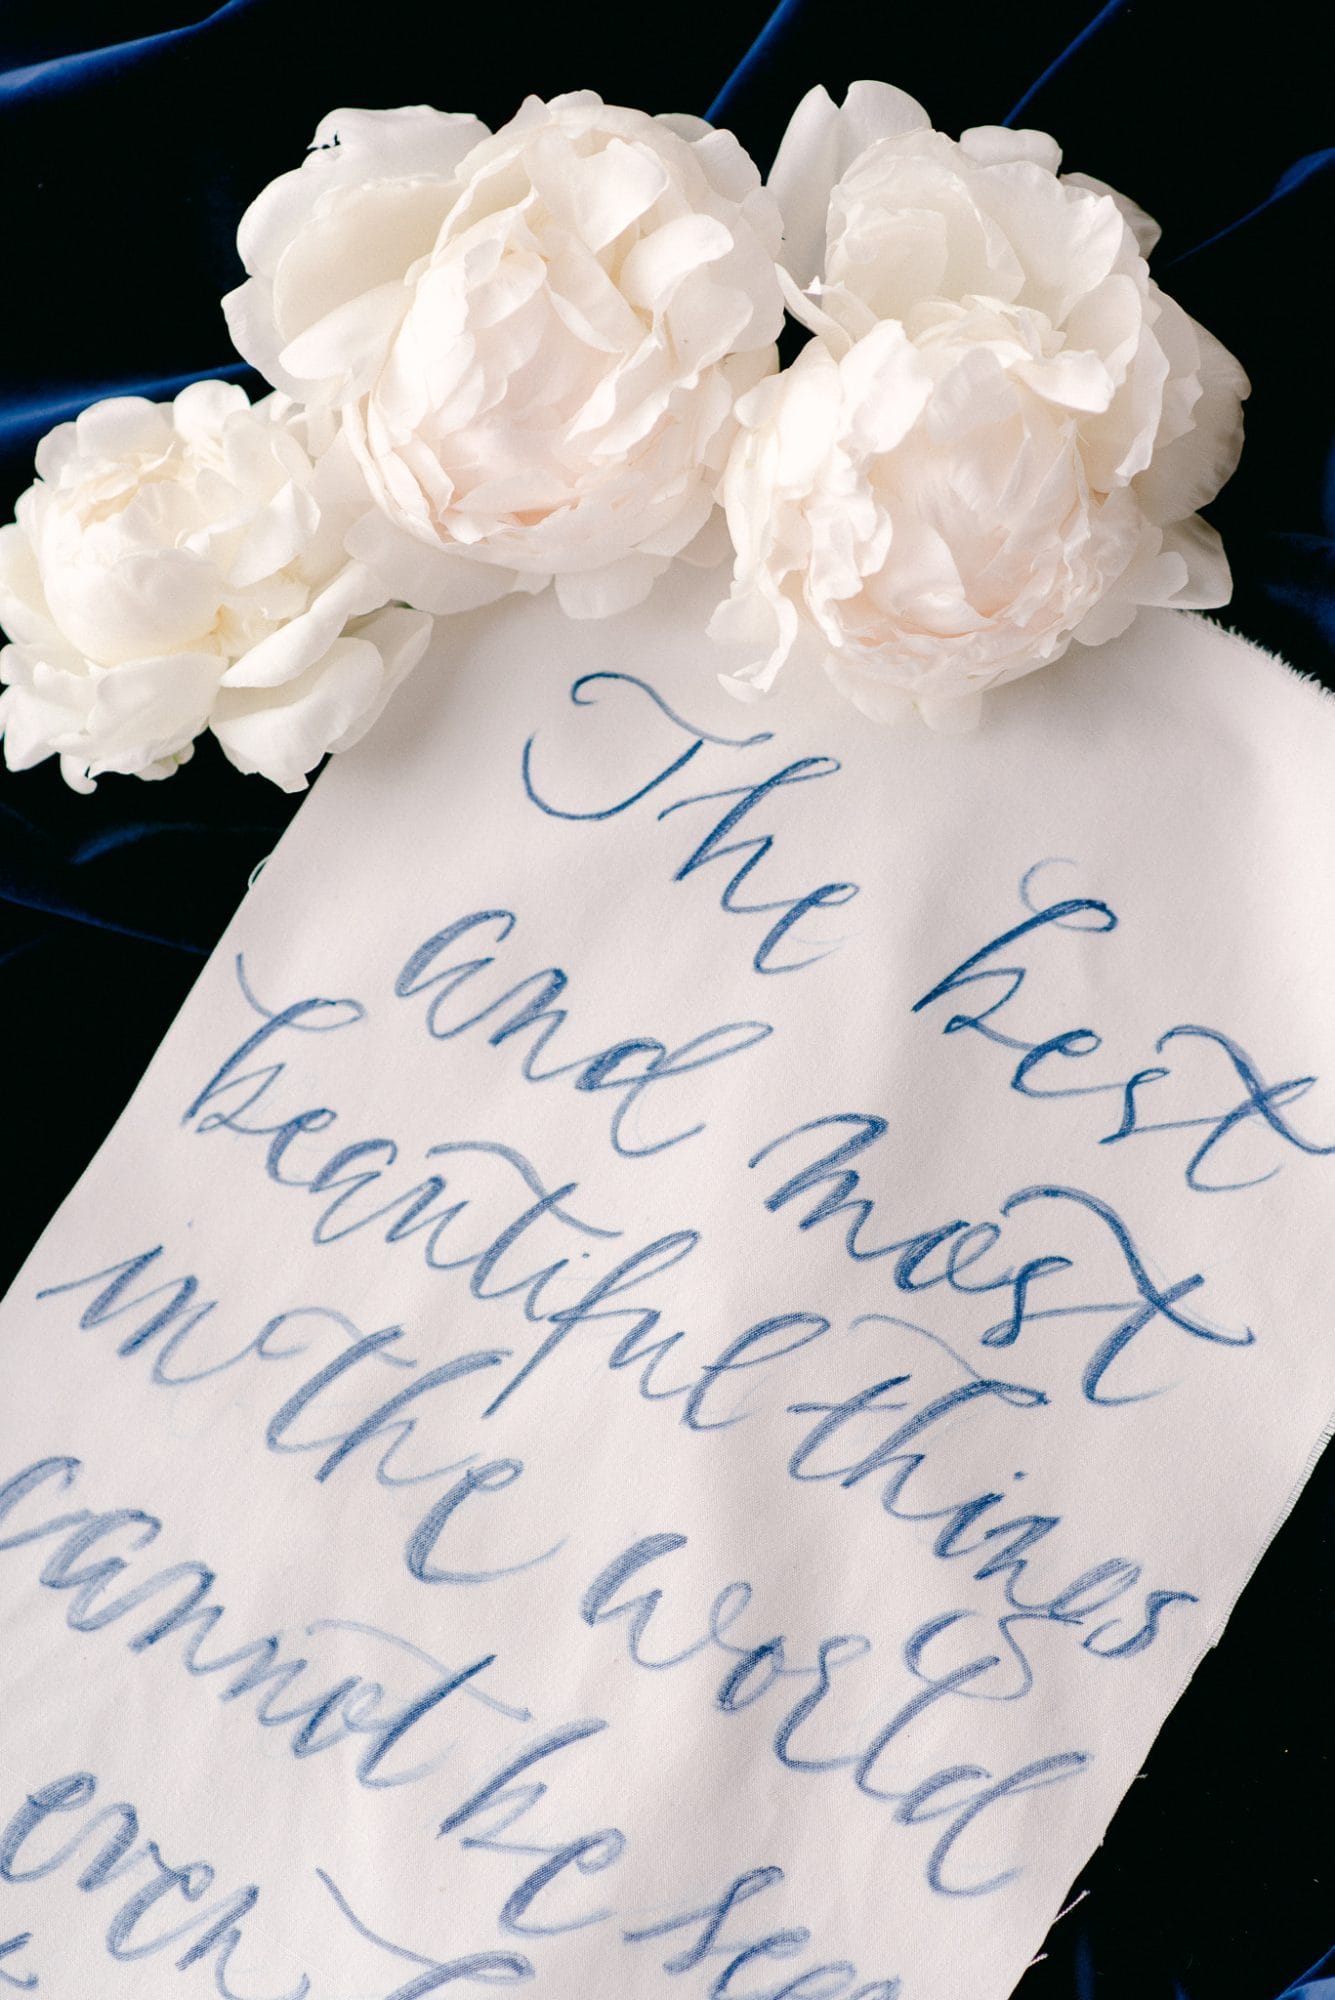 The best
and most
beautiful things
in the world
cannot be see
even